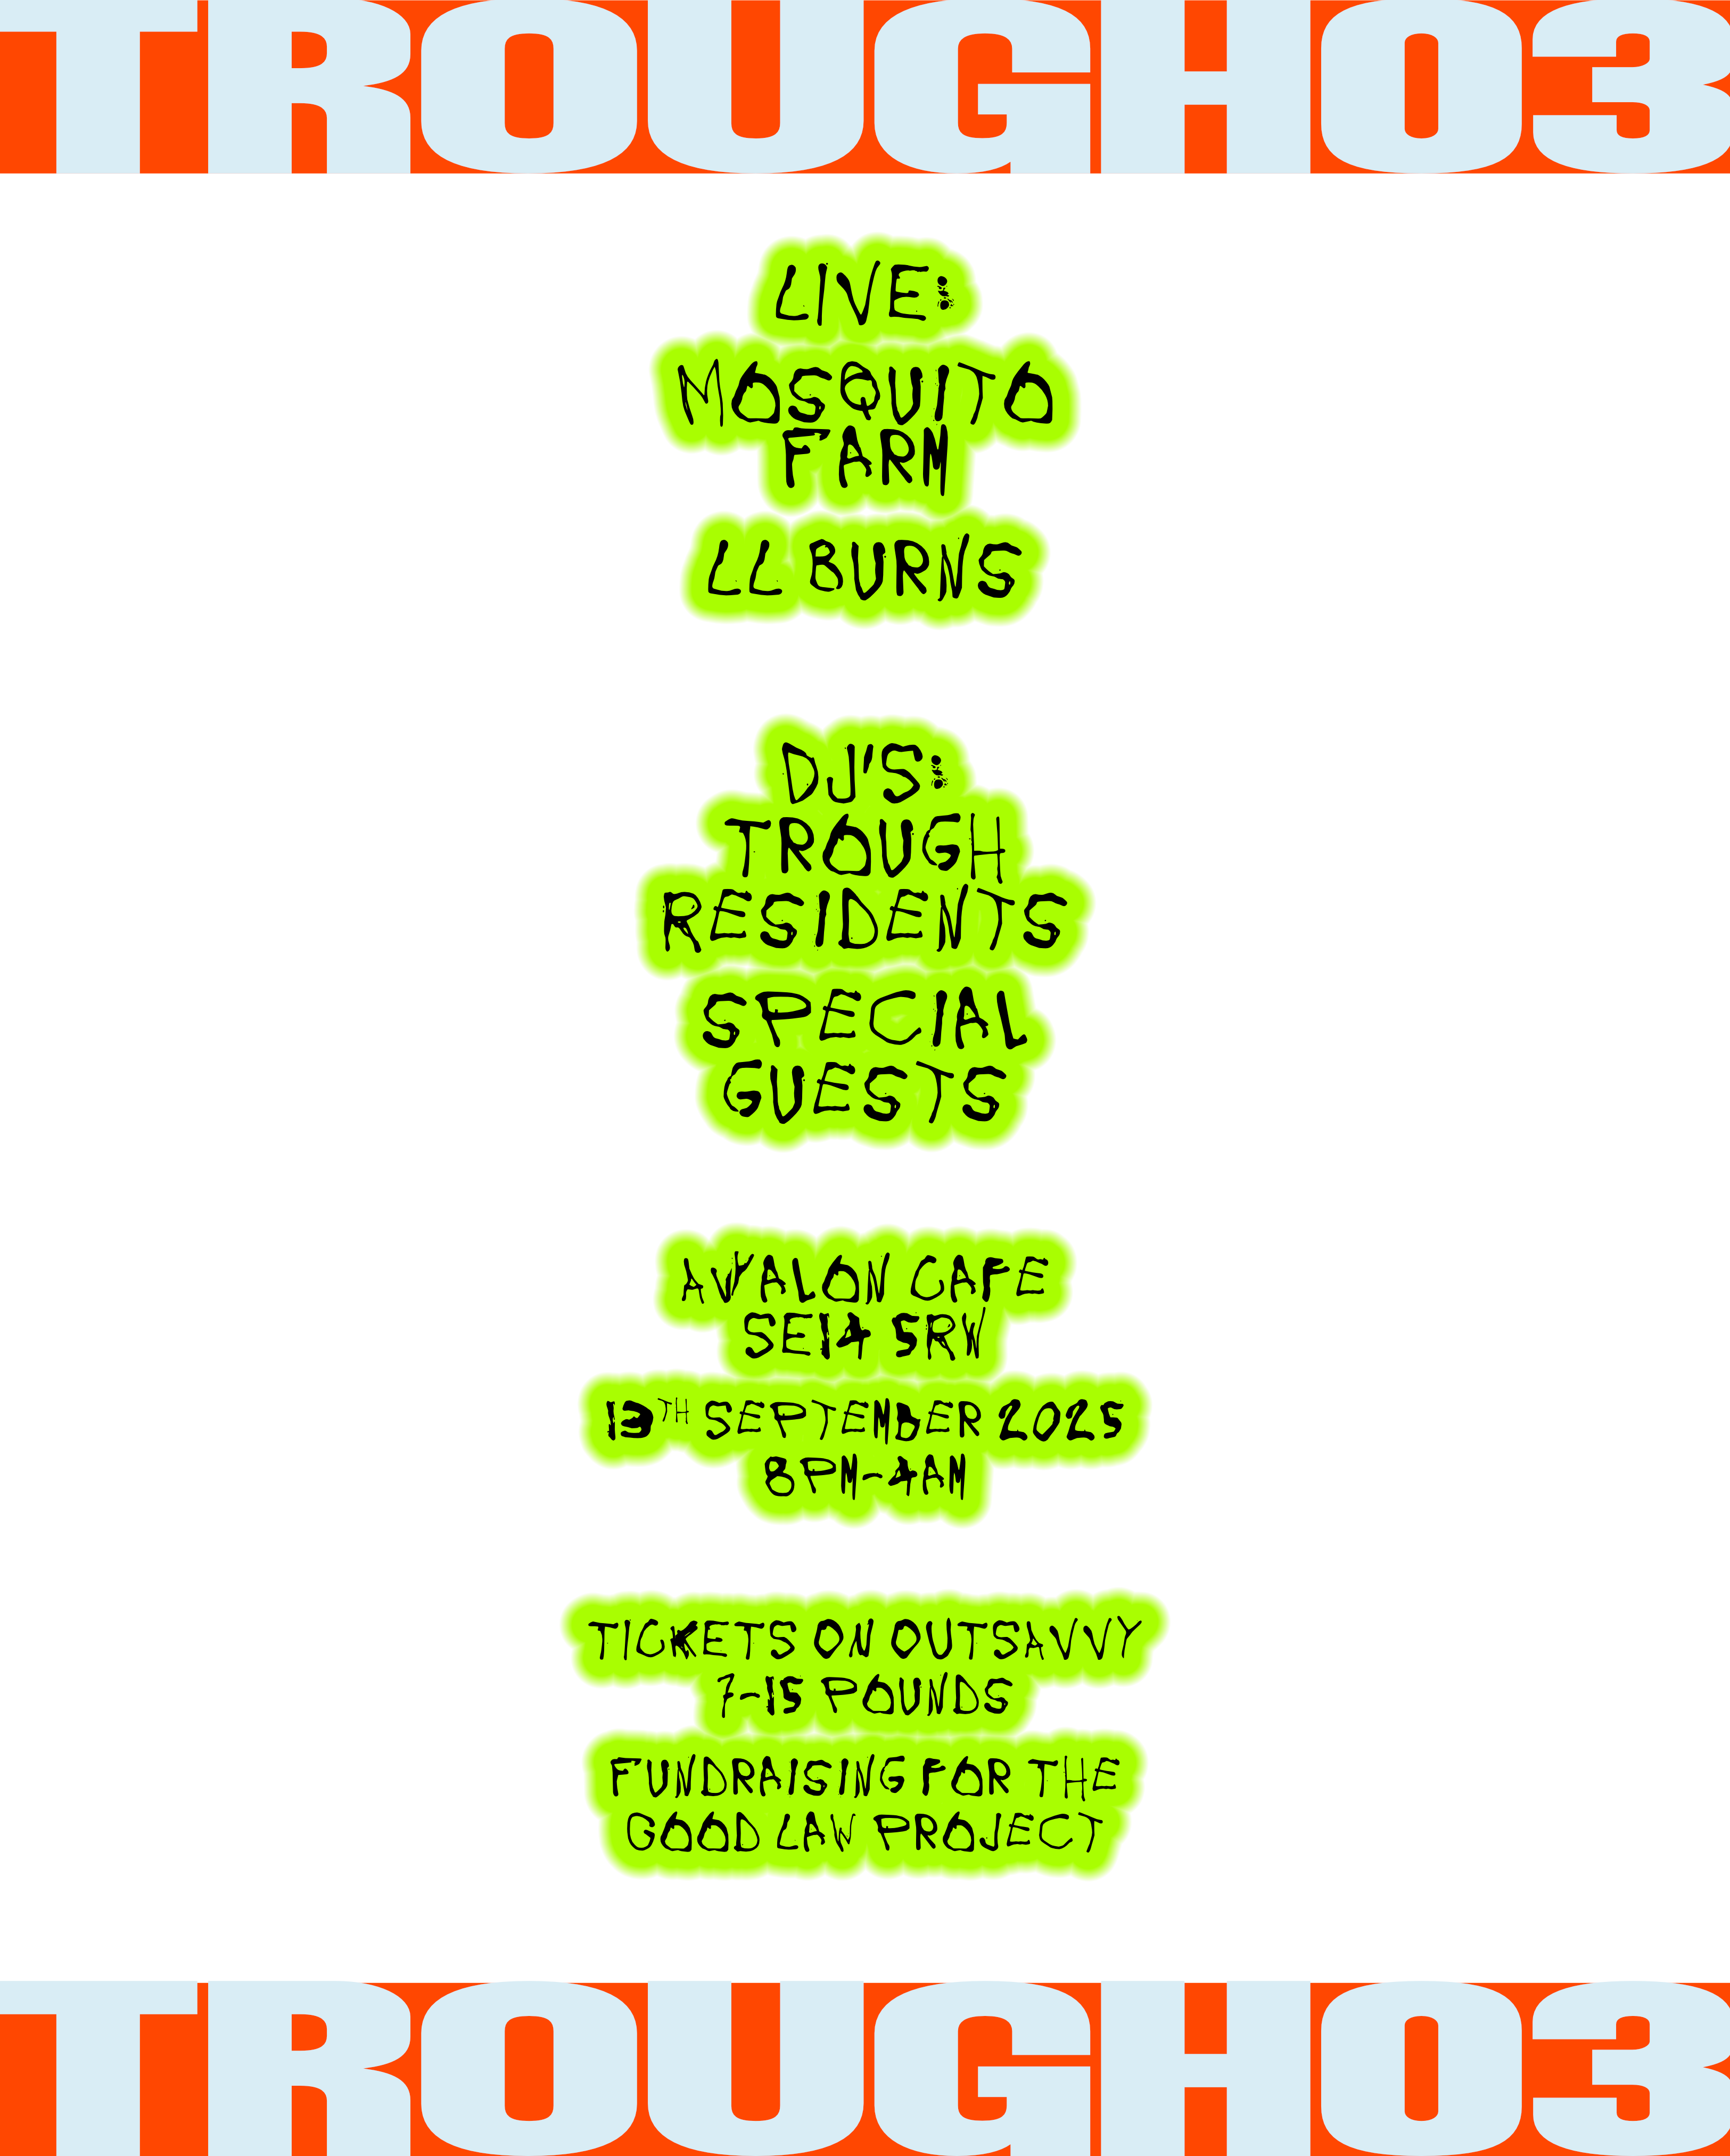 TROUGH03
LIVE:
MOSQUITO
FARM
LL BURNS
DJ'S:
TROUGH
RESIDENTS
SPECIAL
GUESTS
AVALON CAFE
SE14 5RW
13TH SEPTEMBER 2025
8PM-4AM
TICKETS ON OUTSAVVY
7-15 POUNDS
FUNDRAISING FOR THE
GOOD LAW PROJECT
TROUGH03